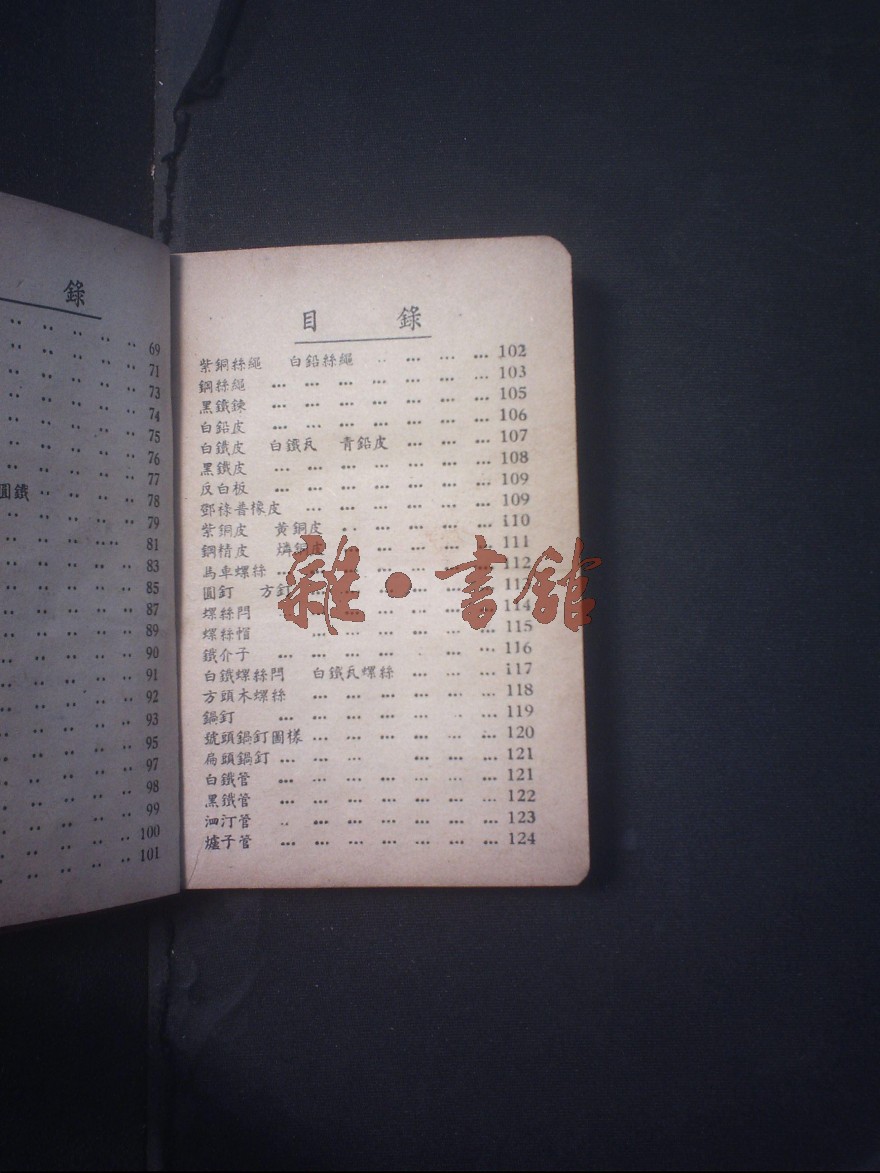 錄
69
71
73
74
75
76
77
圓鐵 78
79
81
83
85
87
89
90
91
92
93
95
97
98
99
100
101
目 錄
紫銅絲繩 白鉛絲繩 .. ... ... ... 102
鋼絲繩 ... ... ... ... ... ... ... 103
黑鐵鍊 ... ... ... ... ... ... ... 105
白鉛皮 ... ... ... ... ... ... ... 106
白鐵皮 白鐵瓦 青鉛皮 ... ... ... 107
黑鐵皮 ... ... ... ... ... ... ... 108
反白板 ... ... ... ... ... ... ... 109
鄧祿普橡皮 ... ... ... ... ... ... 109
紫銅皮 黃銅皮 .. ... ... ... ... 110
鋼精皮 燐銅皮 ... ... ... ... ... 111
馬車螺絲 ... ... ... ... ... ... ... 112
圓釘 方釘 ... ... ... ... ... ... 113
螺絲閂 ... ... ... ... ... ... ... 114
螺絲帽 ... ... ... ... ... ... 115
鐵介子 ... ... ... ... ... ... ... 116
白鐵螺絲閂 白鐵瓦螺絲 ... ... ... 117
方頭木螺絲 ... ... ... ... ... ... 118
鍋釘 ... ... ... ... ... ... ... 119
號頭鍋釘圖樣 ... ... ... ... ... ... 120
扁頭鍋釘 ... ... ... ... ... ... 121
白鐵管 ... ... ... ... ... ... ... 121
黑鐵管 ... ... ... ... ... ... ... 122
泗汀管 .. ... ... ... ... ... ... 123
爐子管 ... ... ... ... ... ... ... 124
雜·書館